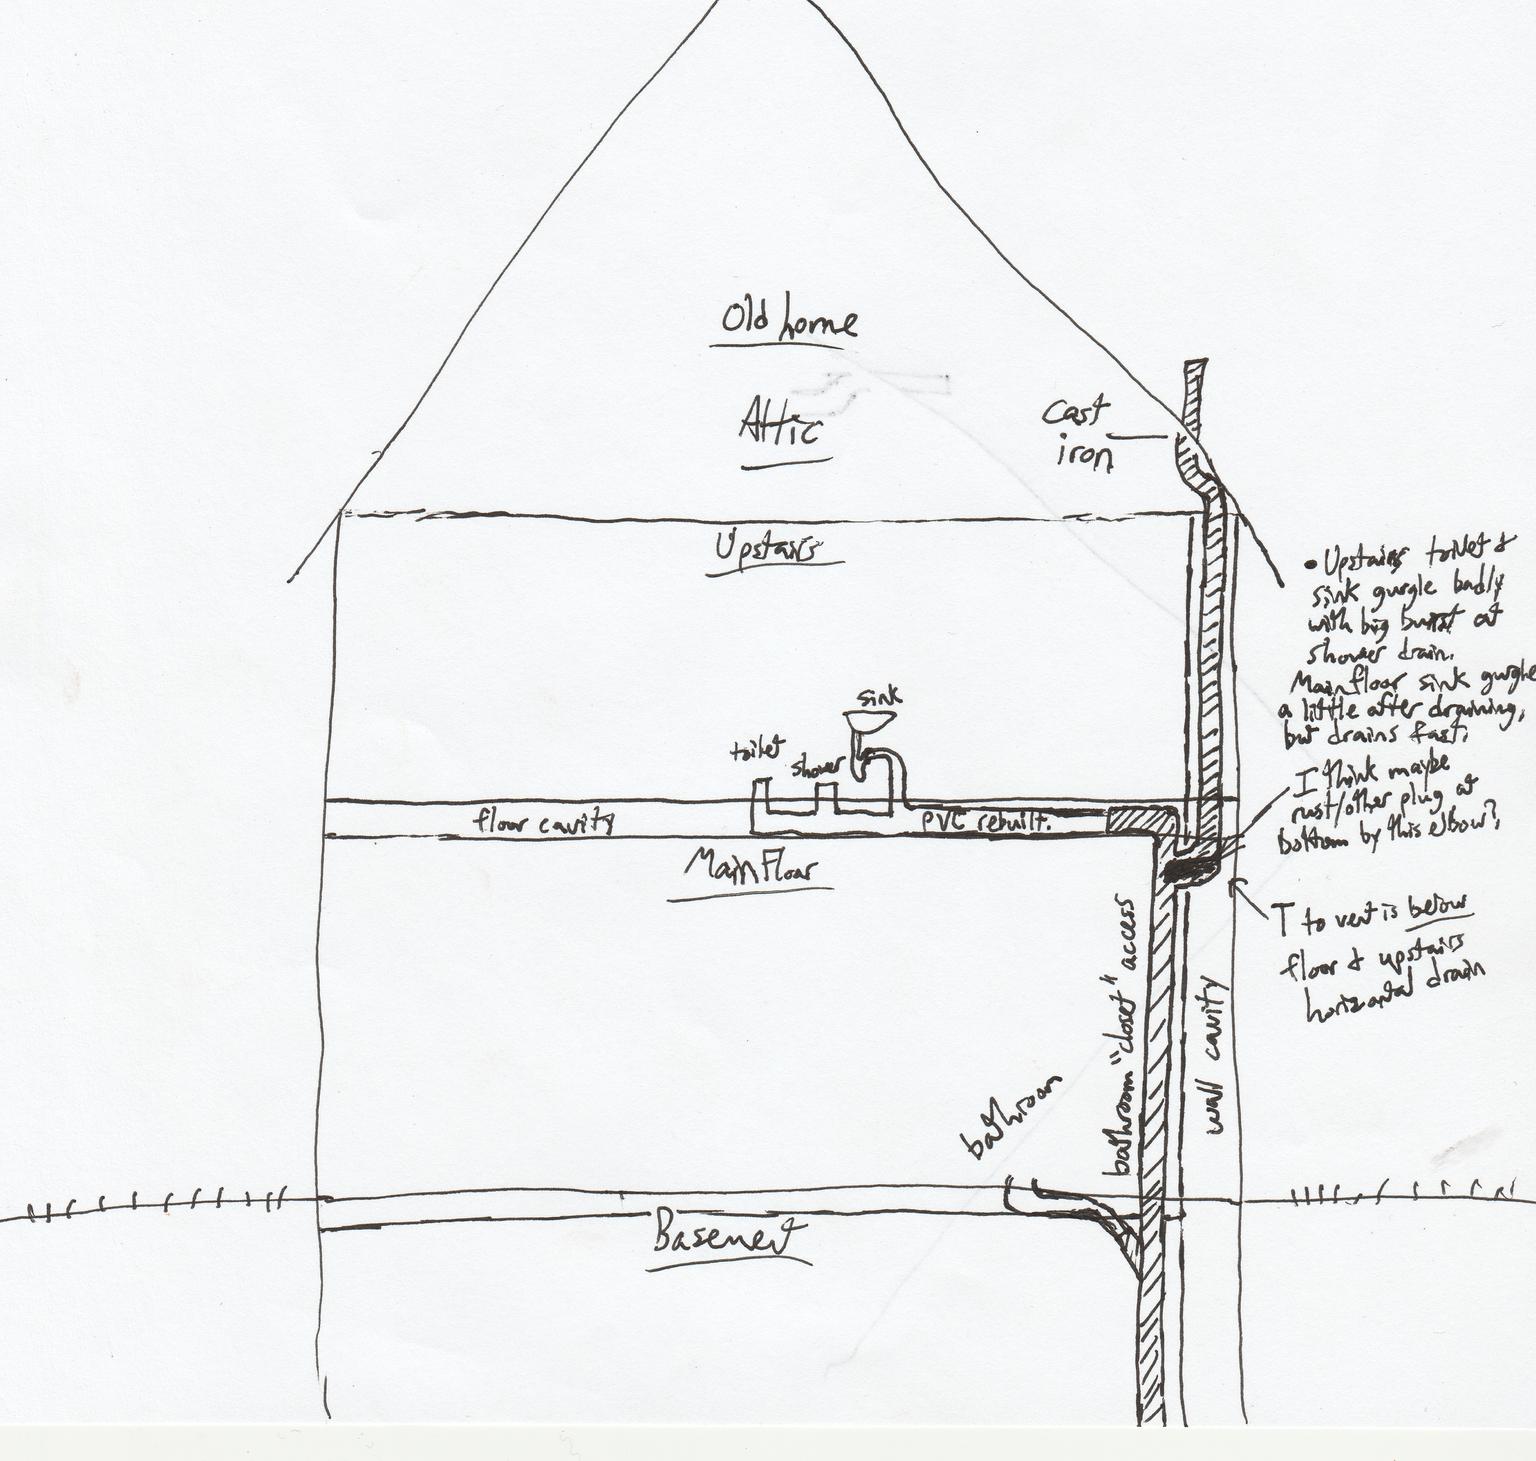 Old home
Attic
Cast
iron
Upstairs
• Upstairs toilet &
sink gurgle badly
with big burst at
shower drain.
Main floor sink gurgle
a little after draining,
but drains fast.
sink
toilet
shower
I think maybe
rust/other plug at
bottom by this elbow?
floor cavity
PVC rebuilt.
Main Floor
T to vent is below
floor & upstairs
horizontal drain
bathroom "closet" access
wall cavity
bathroom
Basement